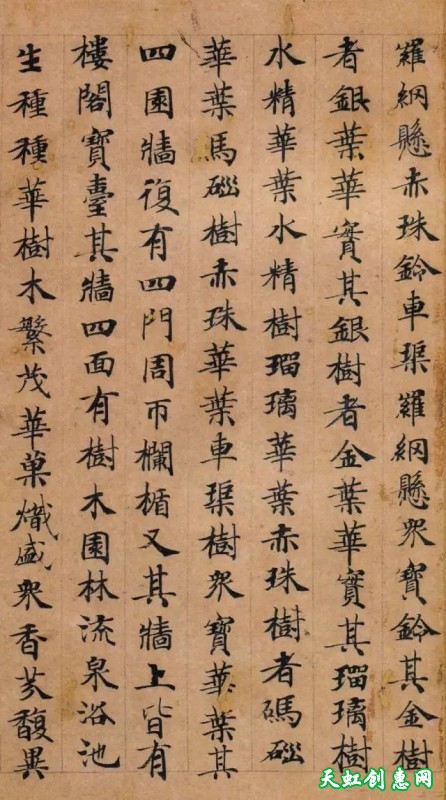 羅網懸赤珠鈴車𤦲羅網懸衆寶鈴其金樹
者銀葉華實其銀樹者金葉華實其瑠璃樹
水精華葉水精樹瑠璃華葉赤珠樹者碼碯
華葉馬碯樹赤珠華葉車𤦲樹衆寶華葉其
四園牆復有四門周帀欄楯又其牆上皆有
樓閣寶臺其牆四面有樹木園林流泉浴池
生種種華樹木繁茂華菓熾盛衆香芬馥異
天虹创惠网